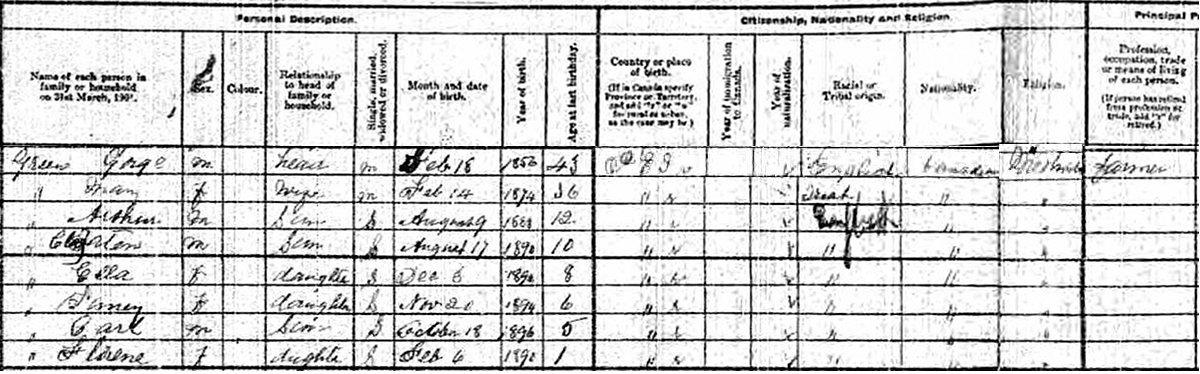 Personal Description. Citizenship, Nationality and Religion Principal P
Name of each person in family or household on 31st March, 190 . Sex. Colour. Relationship to head of family or household. Single, married, widowed or divorced. Month and date of birth. Year of birth. Age at last birthday. Country or place of birth. (If in Canada specify Province or Territory, and add "r" or "u" for rural or urban, as the case may be.) Year of immigration to Canada. Year of naturalization. Racial or Tribal origin. Nationality. Religion. Profession, occupation, trade or means of living of each person. (If person has retired from profession or trade, add "r" for retired.)
Green Gorge m head m Feb 18 43 English Canadian Farmer
" f wife m Feb 14 36 " "
" Arthur m Son S August 9 12 " English " "
" m Son S August 17 1890 10 " " " "
" Ella f daughter S Dec 6 8 " " " "
" f daughter S Nov 20 1894 6 " " " "
" Carl m Son S October 18 1896 5 " " " "
" Florence f dughter S Feb 6 1 " " " "